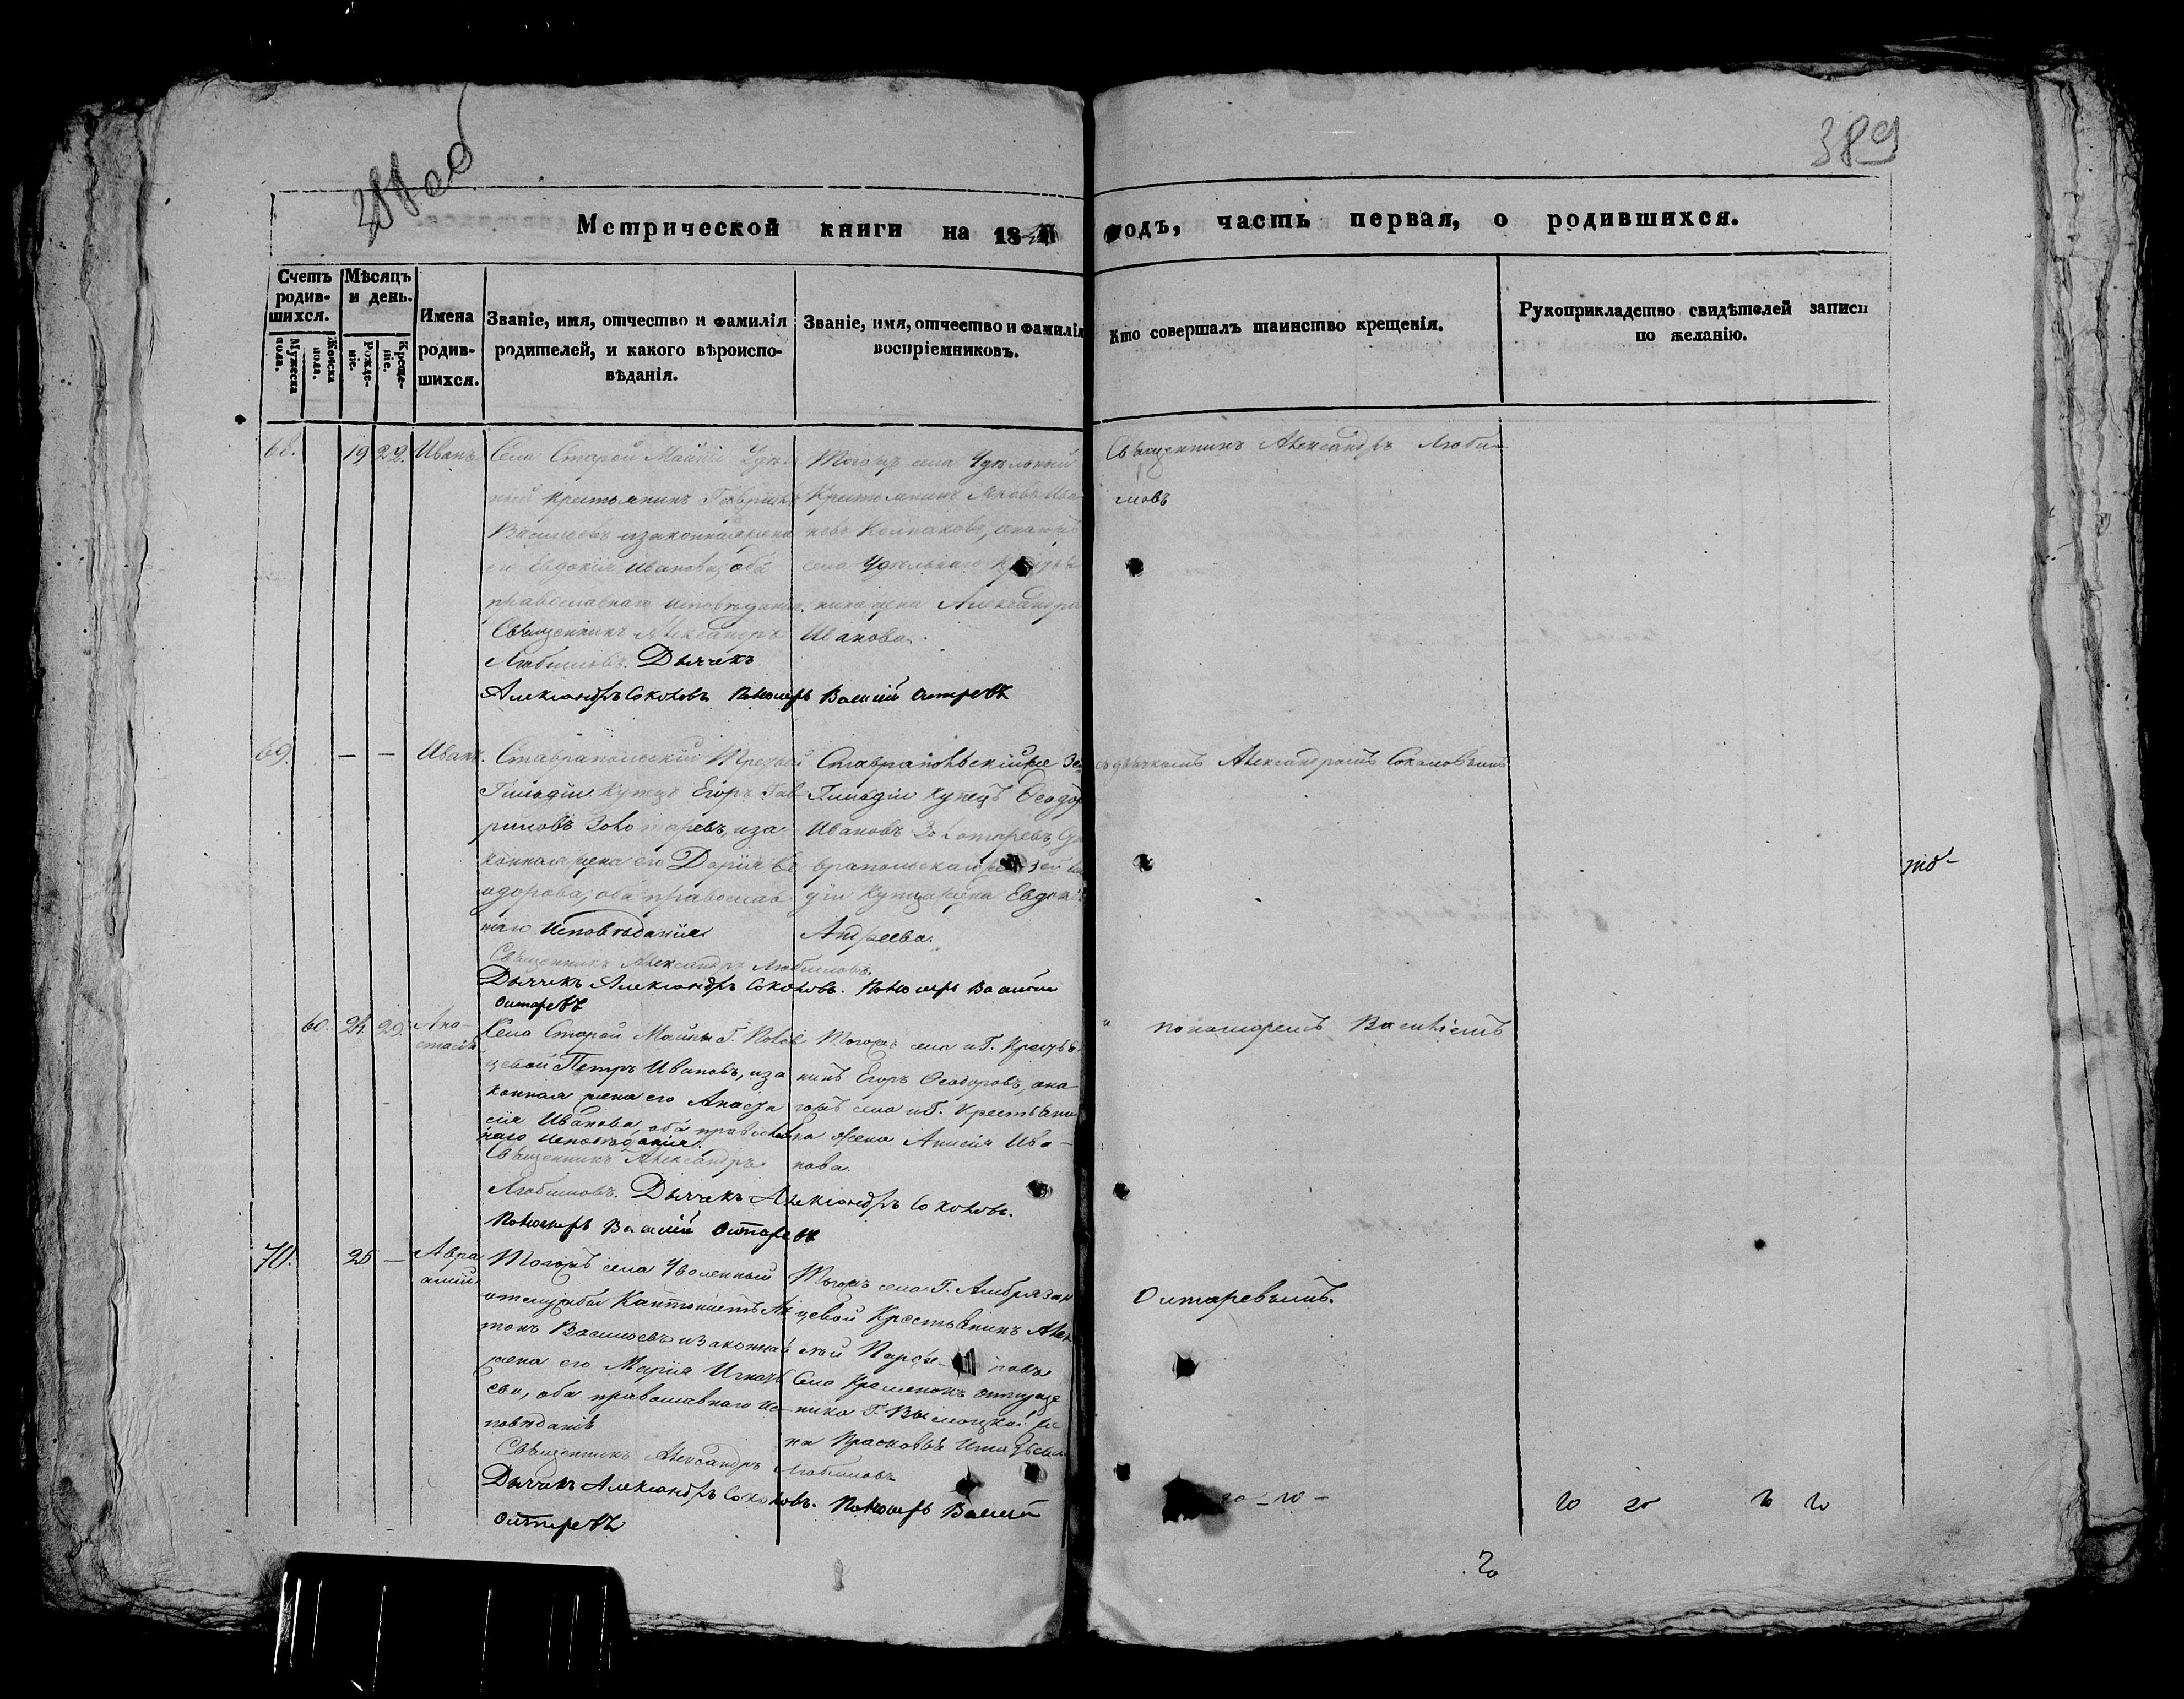 389
Метрической книги на 18 годъ, часть первая, о родившихся.
Счетъ родившихся.
Мужеска пола.
Женска пола.
Мѣсяцъ и день.
Рожденіе.
Крещеніе.
Имена родившихся.
Званіе, имя, отчество и фамилія родителей, и какого вѣроисповѣданія.
Званіе, имя, отчество и фамилія воспріемниковъ.
Кто совершалъ таинство крещенія.
Рукоприкладство свидѣтелей записи по желанію.
68. 19 22. Иванъ
Села Старой Майны Удѣль
ный крестьянинъ Гавріилъ
Васильевъ и законная жена
его Евдокія Иванова, оба
православнаго исповѣданія.
Священникъ Александръ
Любимовъ. Дьячекъ
Александръ Соколовъ Пономарь Василій
Тогожъ села Удѣльный
Крестьянинъ Яковъ Ива
новъ Колпаковъ, онагожъ
села Удѣльнаго Крестья
нина жена Александра
Иванова.
Священникъ Александръ Люби-
мовъ
69. — — Иванъ.
Ставропольскій Третьей
Гильдіи Купецъ Егоръ Гав
риловъ Золотаревъ, и за
конная жена его Дарія Ѳе
одорова, оба православ
наго исповѣданія
Священникъ Александръ Любимовъ.
Дьячекъ Александръ Соколовъ. Пономарь Василій
Ставропольскій же 3ей
Гильдіи Купецъ Ѳеодоръ
Ивановъ Золотаревъ, Ста
вропольская же 3ей Гиль
діи Купца жена Евдокія
Андреева.
съ дьячкомъ Александромъ Соколовымъ
60. 24. 29. Ана-
стасія
Села Старой Майны Г.
Петръ Ивановъ, и за
конная жена его Анаста
сія Иванова, оба православ
наго исповѣданія.
Священникъ Александръ
Любимовъ. Дьячекъ Александръ Соколовъ.
Пономарь Василій
Тогожъ села и Г. Крестья
нинъ Егоръ Ѳеодоровъ, она
гожъ села и Г. Крестьяни
на жена Анисія Ива-
нова.
и пономаремъ Василіемъ
70. 25 — Авра
амій.
Тогожъ села Уволенный
отслужбы Кантонистъ Ан
тонъ Васильевъ и законная
жена его Марія Игнать
ева, оба православнаго ис
повѣданія
Священникъ Александръ Любимовъ
Дьячекъ Александръ Соколовъ. Пономарь Василій
Тогожъ села Г.
цевой Крестьянинъ Алек
сѣй
Села Кременокъ отпуще
ника Г. Высоцкой же
на Прасковья